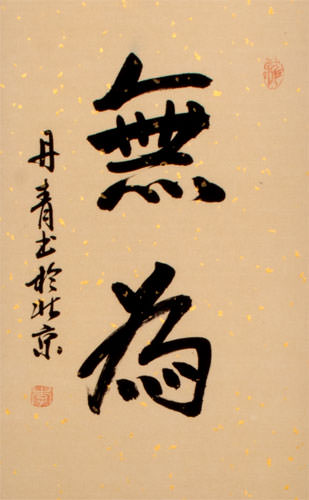 無為
丹青书於北京